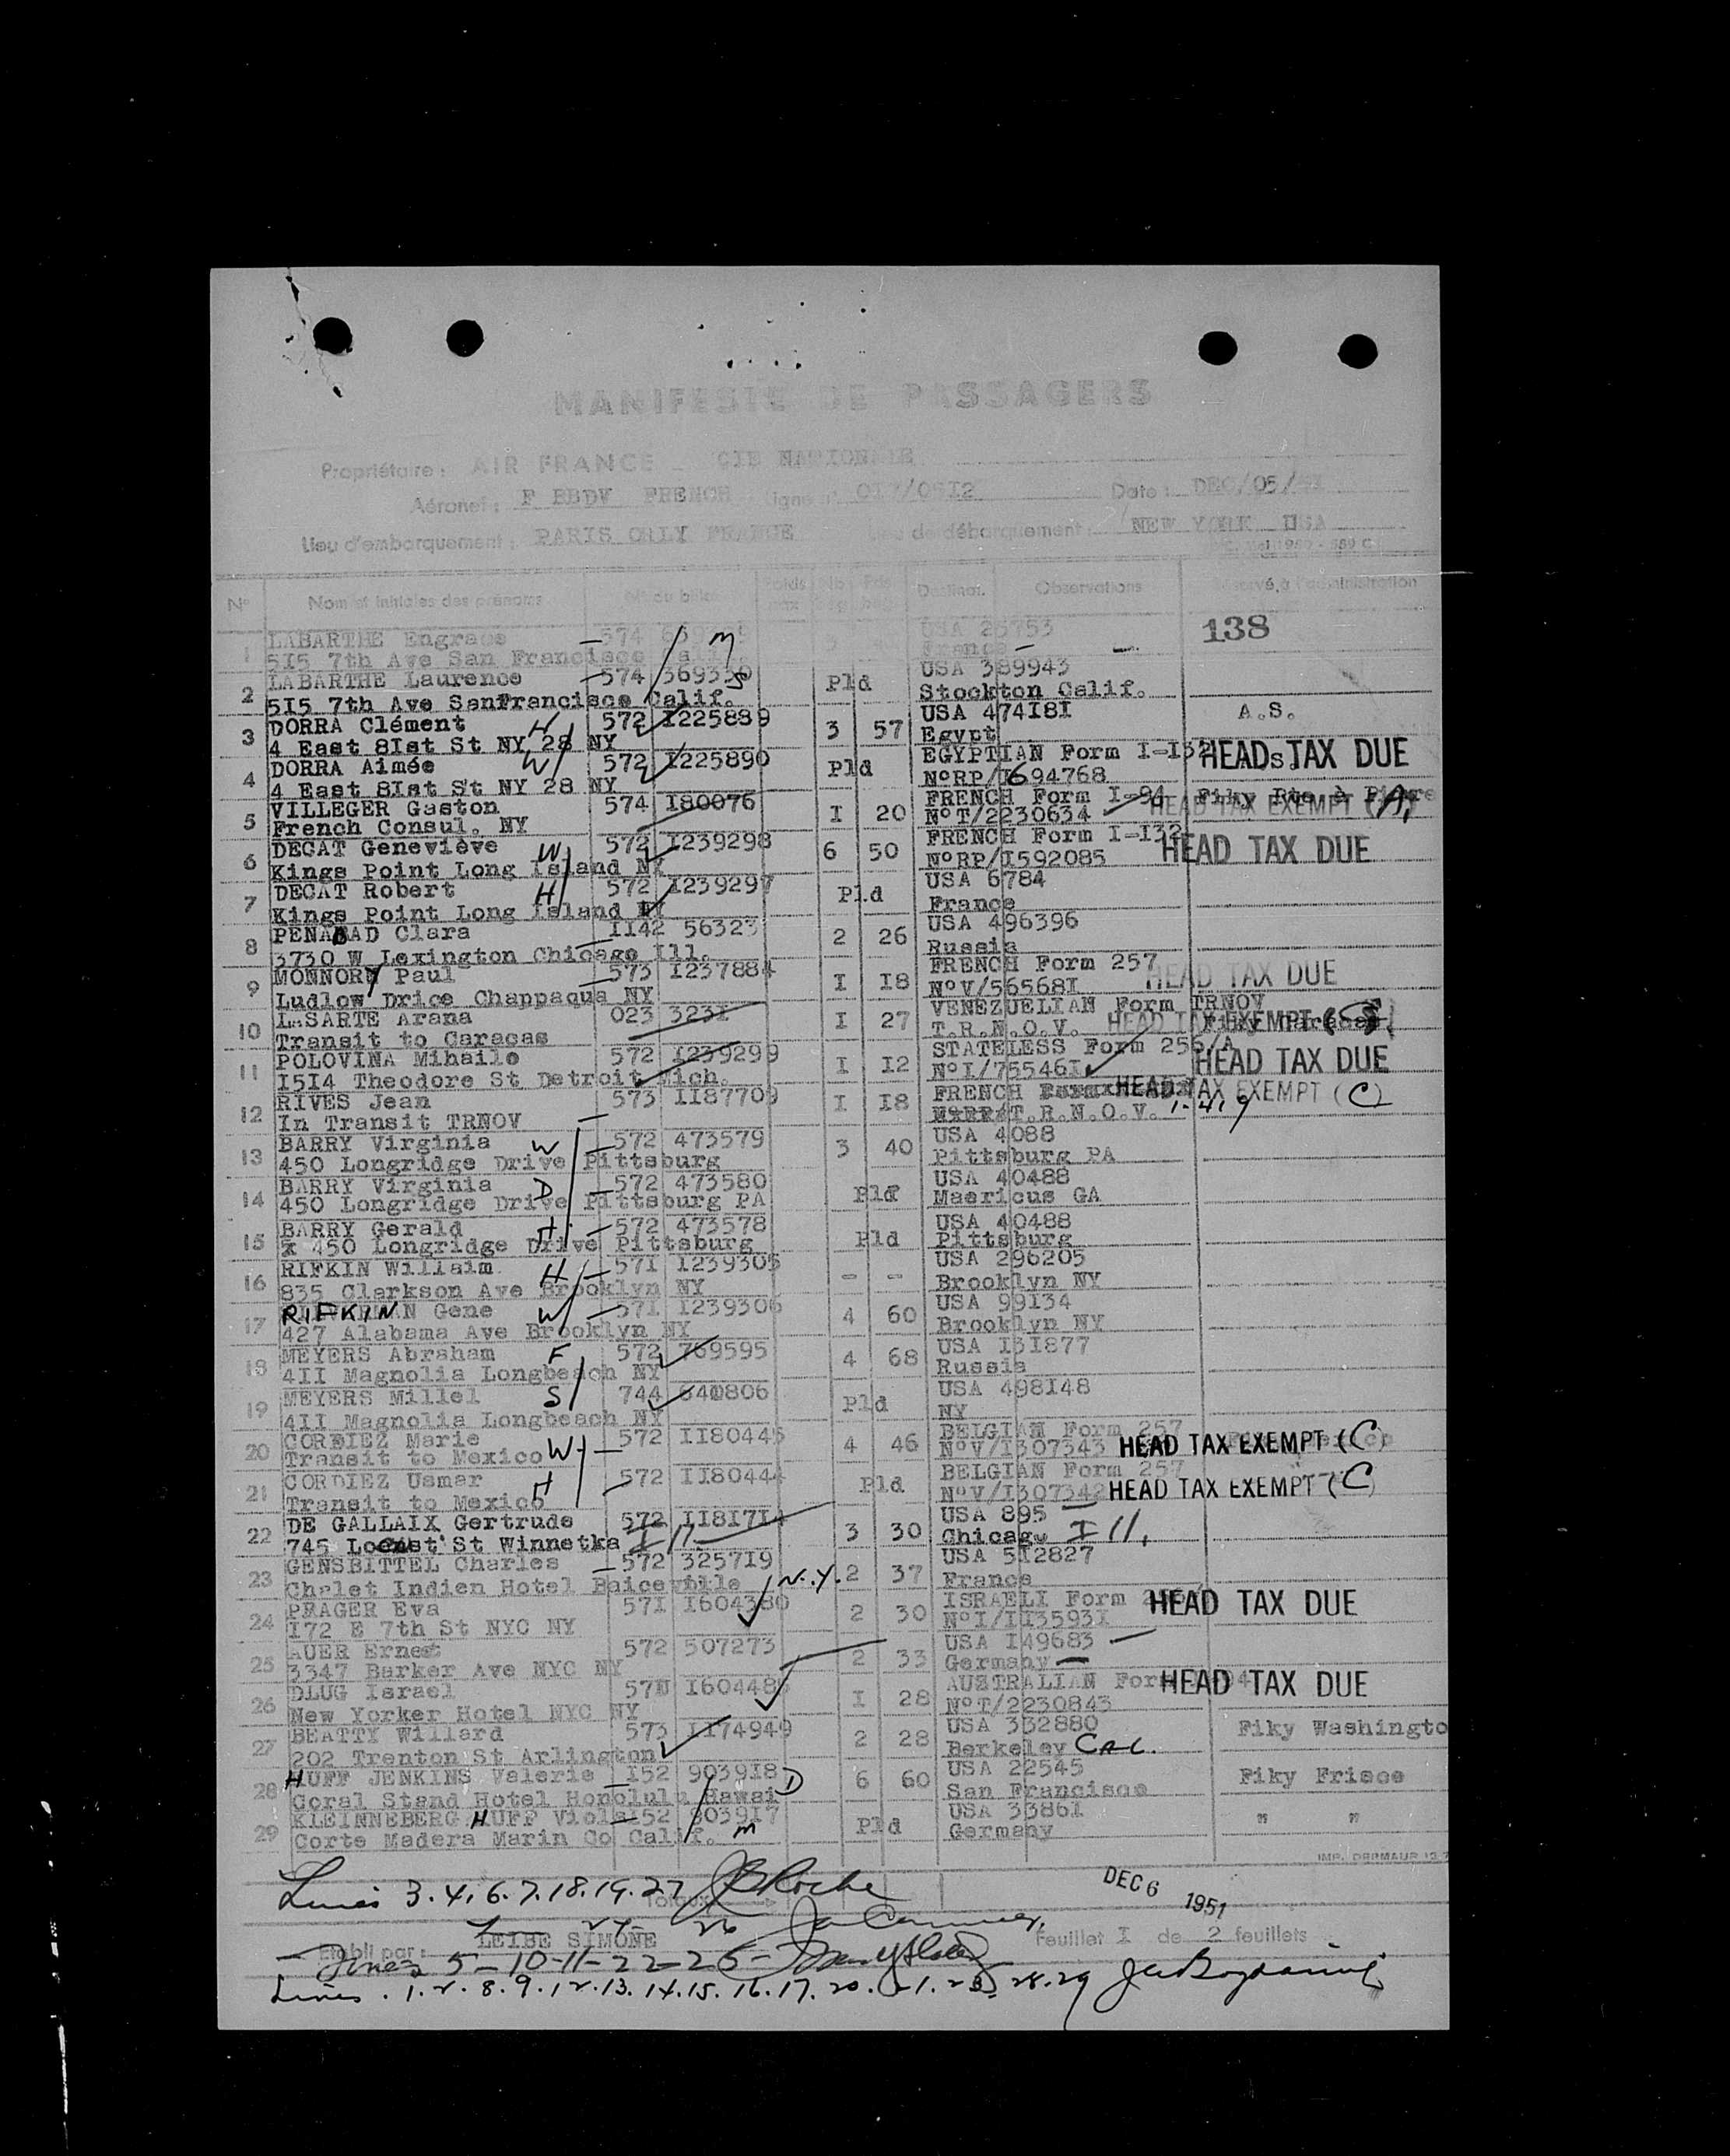 MANIFESTE DE PASSAGERS
Propriétaire : AIR FRANCE CIE NATIONALE
Aéronef : F BBDV FRENCH Ligne n° 017/0512 Date : DEC/05/51
Lieu d'embarquement : PARIS ORLY FRANCE Lieu de débarquement : NEW YORK USA
N° Nom et initiales des prénoms N° du billet Poids Nb Pds Destinat. Observations Réservé à l'administration
1 LABARTHE Engrace 574 M 3 USA 25753 138
515 7th Ave San Francisco France
2 LABARTHE Laurence 574 369330 S Pld USA 389943
515 7th Ave SanFrancisco Calif. Stockton Calif.
3 DORRA Clément H 572 I225889 3 57 USA 474I8I A.S.
4 East 8Ist St NY 28 NY Egypt
4 DORRA Aimée W 572 I225890 Pld EGYPTIAN Form I-I32 HEADS TAX DUE
4 East 8Ist St NY 28 NY N°RP/I694768
5 VILLEGER Gaston 574 I80076 I 20 FRENCH Form I-94 HEAD TAX EXEMPT (A)
French Consul. NY N°T/2230634
6 DECAT Geneviève W 572 I239298 6 50 FRENCH Form I-I32 HEAD TAX DUE
Kings Point Long Island NY N°RP/I592085
7 DECAT Robert H 572 I239297 Pld USA 6784
Kings Point Long Island NY France
8 PENABAD Clara II42 56323 2 26 USA 496396
3730 W Lexington Chicago Ill. Russia
9 MONNORY Paul 573 I237884 I I8 FRENCH Form 257 HEAD TAX DUE
Ludlow Drice Chappaqua NY N°V/56568I
10 LASARTE Arana 023 323I I 27 VENEZUELIAN Form TRNOV
Transit to Caracas T.R.N.O.V. HEAD TAX EXEMPT
11 POLOVINA Mihailo 572 I239299 I I2 STATELESS Form 256/A HEAD TAX DUE
I5I4 Theodore St Detroit Mich. N°I/75546I
12 RIVES Jean 573 II87709 I I8 FRENCH HEAD TAX EXEMPT (C)
In Transit TRNOV T.R.N.O.V. 1-419
13 BARRY Virginia W 572 473579 3 40 USA 4088
450 Longridge Drive Pittsburg Pittsburg PA
14 BARRY Virginia D 572 473580 Pld USA 40488
450 Longridge Drive Pittsburg PA Maericus GA
15 BARRY Gerald H 572 473578 Pld USA 40488
x 450 Longridge Drive Pittsburg Pittsburg
16 RIFKIN Willaim H 57I I239305 - -- USA 296205
835 Clarkson Ave Brooklyn NY Brooklyn NY
17 RIFKIN Gene W 57I I239306 4 60 USA 99I34
427 Alabama Ave Brooklyn NY Brooklyn NY
18 MEYERS Abraham F 572 769595 4 68 USA I3I877
4II Magnolia Longbeach NY Russia
19 MEYERS Millel S 744 640806 Pld USA 498I48
4II Magnolia Longbeach NY NY
20 CORDIEZ Marie W 572 II80445 4 46 BELGIAN Form 257
Transit to Mexico N°V/I307343 HEAD TAX EXEMPT (C)
21 CORDIEZ Usmar H 572 II80444 Pld BELGIAN Form 257
Transit to Mexico N°V/I307342 HEAD TAX EXEMPT (C)
22 DE GALLAIX Gertrude 572 II8I7I4 3 30 USA 895
745 Locust St Winnetka Ill. Chicago Ill.
23 GENSBITTEL Charles 572 3257I9 2 37 USA 5I2827
Chalet Indien Hotel N.Y. France
24 PRAGER Eva 57I I604380 2 30 ISRAELI Form HEAD TAX DUE
I72 E 7th St NYC NY N°I/II3593I
25 AUER Ernest 572 507273 2 33 USA I49683
3347 Barker Ave NYC NY Germany
26 DLUG Israel 57I I604485 I 28 AUSTRALIAN Form HEAD TAX DUE
New Yorker Hotel NYC NY N°T/2230843
27 BEATTY Willard 573 II74949 2 28 USA 332880 Fiky Washingto
202 Trenton St Arlington Berkeley CAL.
28 HUFF JENKINS Valerie I52 9039I8 D 6 60 USA 22545 Fiky Frisco
Coral Stand Hotel Honolulu Hawai San Francisco
29 KLEINNEBERG HUFF Viola I52 9039I7 Pld USA 3386I " "
Corte Madera Marin Co Calif. m Germany
Lines 3.4.6.7.18.19.27 JB Roche DEC 6 1951
24 26
Etabli par : LEIBE SIMONE Feuillet I de 2 feuillets
Lines 5-10-11-22-25-
Lines 1.2.8.9.12.13.14.15.16.17.20.21.23.28.29